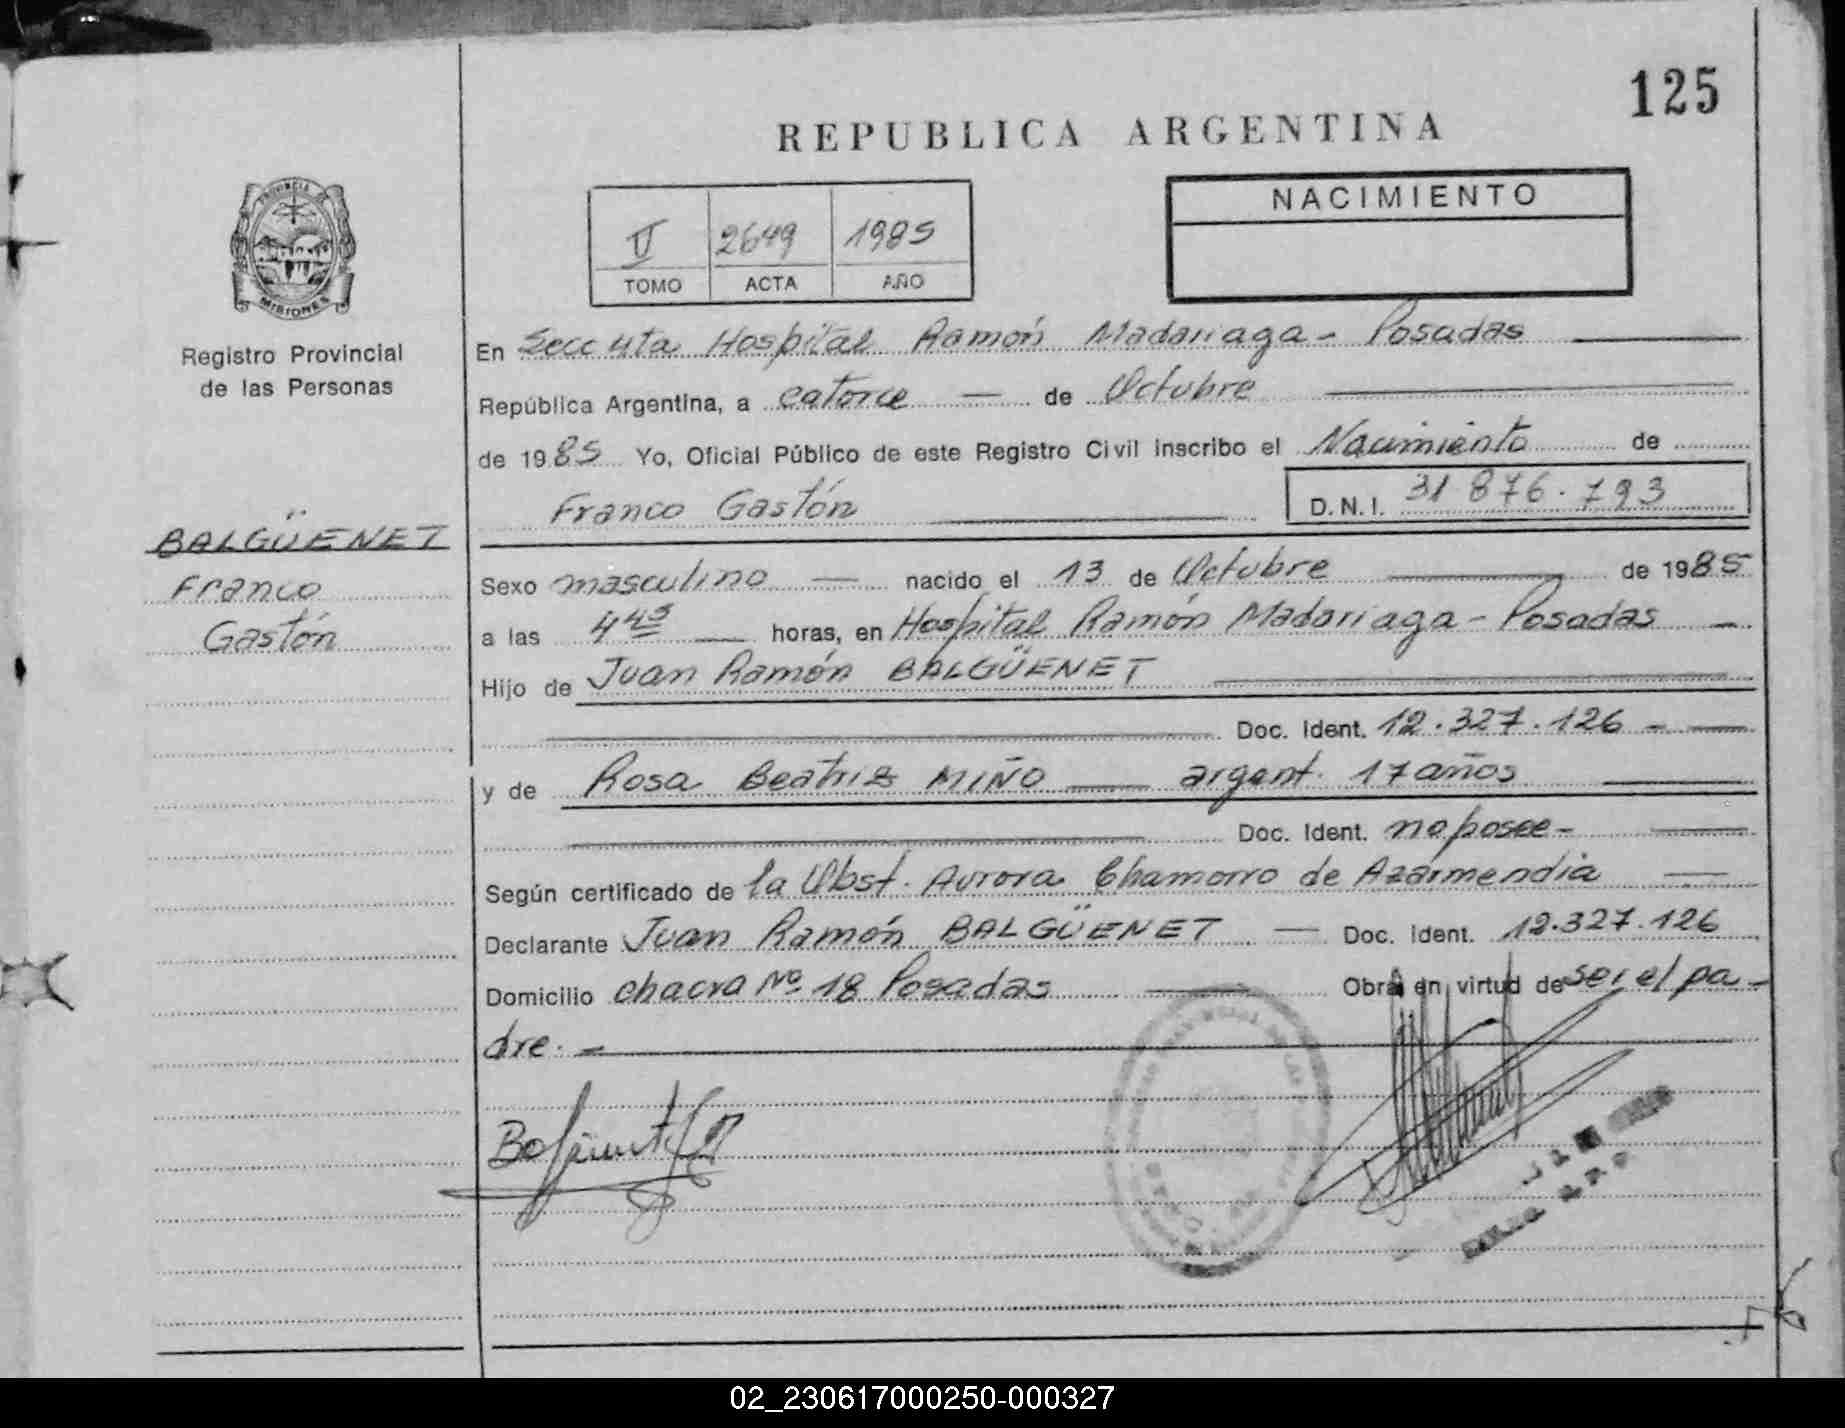 125
REPUBLICA ARGENTINA
PROVINCIA DE
MISIONES
Registro Provincial
de las Personas
V 2649 1985
TOMO ACTA AÑO
NACIMIENTO
En Secc 4ta Hospital Ramón Madariaga - Posadas
República Argentina, a catorce — de Octubre
de 1985 Yo, Oficial Público de este Registro Civil inscribo el Nacimiento de
Franco Gastón D.N.I. 31 876.793
BALGÜENET
Franco
Gastón
Sexo masculino — nacido el 13 de Octubre de 1985
a las 4 45 — horas, en Hospital Ramón Madariaga - Posadas -
Hijo de Juan Ramón BALGÜENET
Doc. Ident. 12.327.126 -
y de Rosa Beatriz MIÑO — argent. 17 años
Doc. Ident. no posee -
Según certificado de la Obst. Aurora Chamorro de Azarmendia
Declarante Juan Ramón BALGÜENET — Doc. Ident. 12.327.126
Domicilio chacra Nº 18 Posadas Obra en virtud de ser el pa-
dre. -
02_230617000250-000327